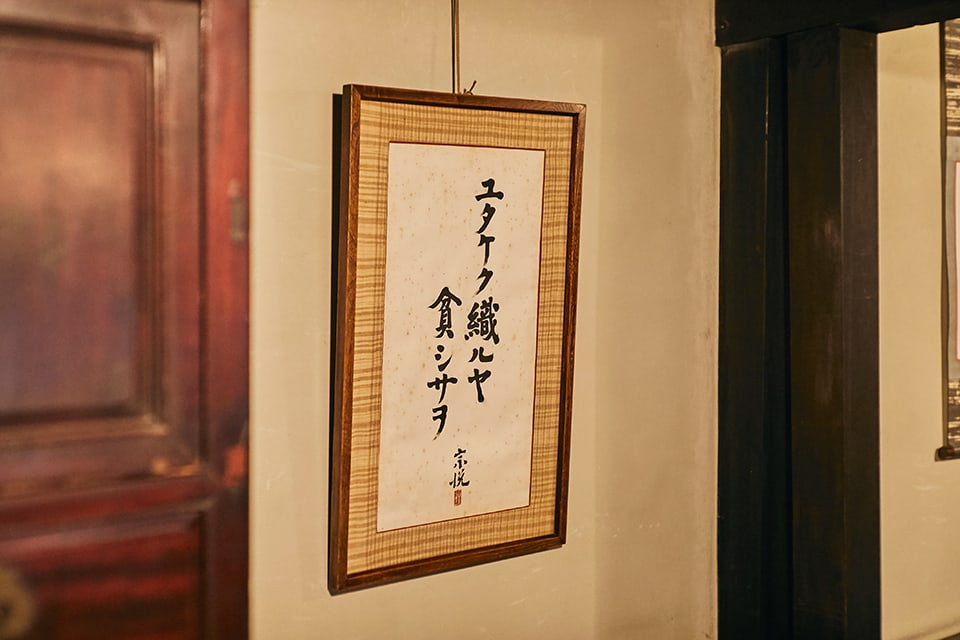 ユタケク織ルヤ
貧シサヲ
宗悦